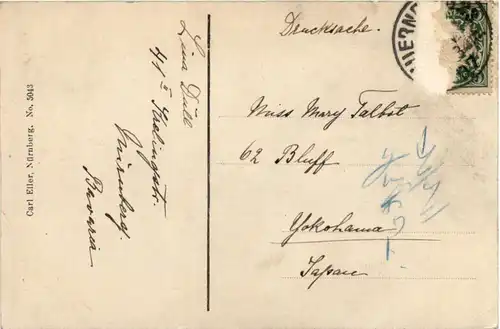 Drucksache.
Miss. Mary Talbot
62 Bluff
Yokohama
Japan
Lina Düll
41 Nürnberg.
Bavaria
Carl Eller, Nürnberg. No. 5043
NUERNB